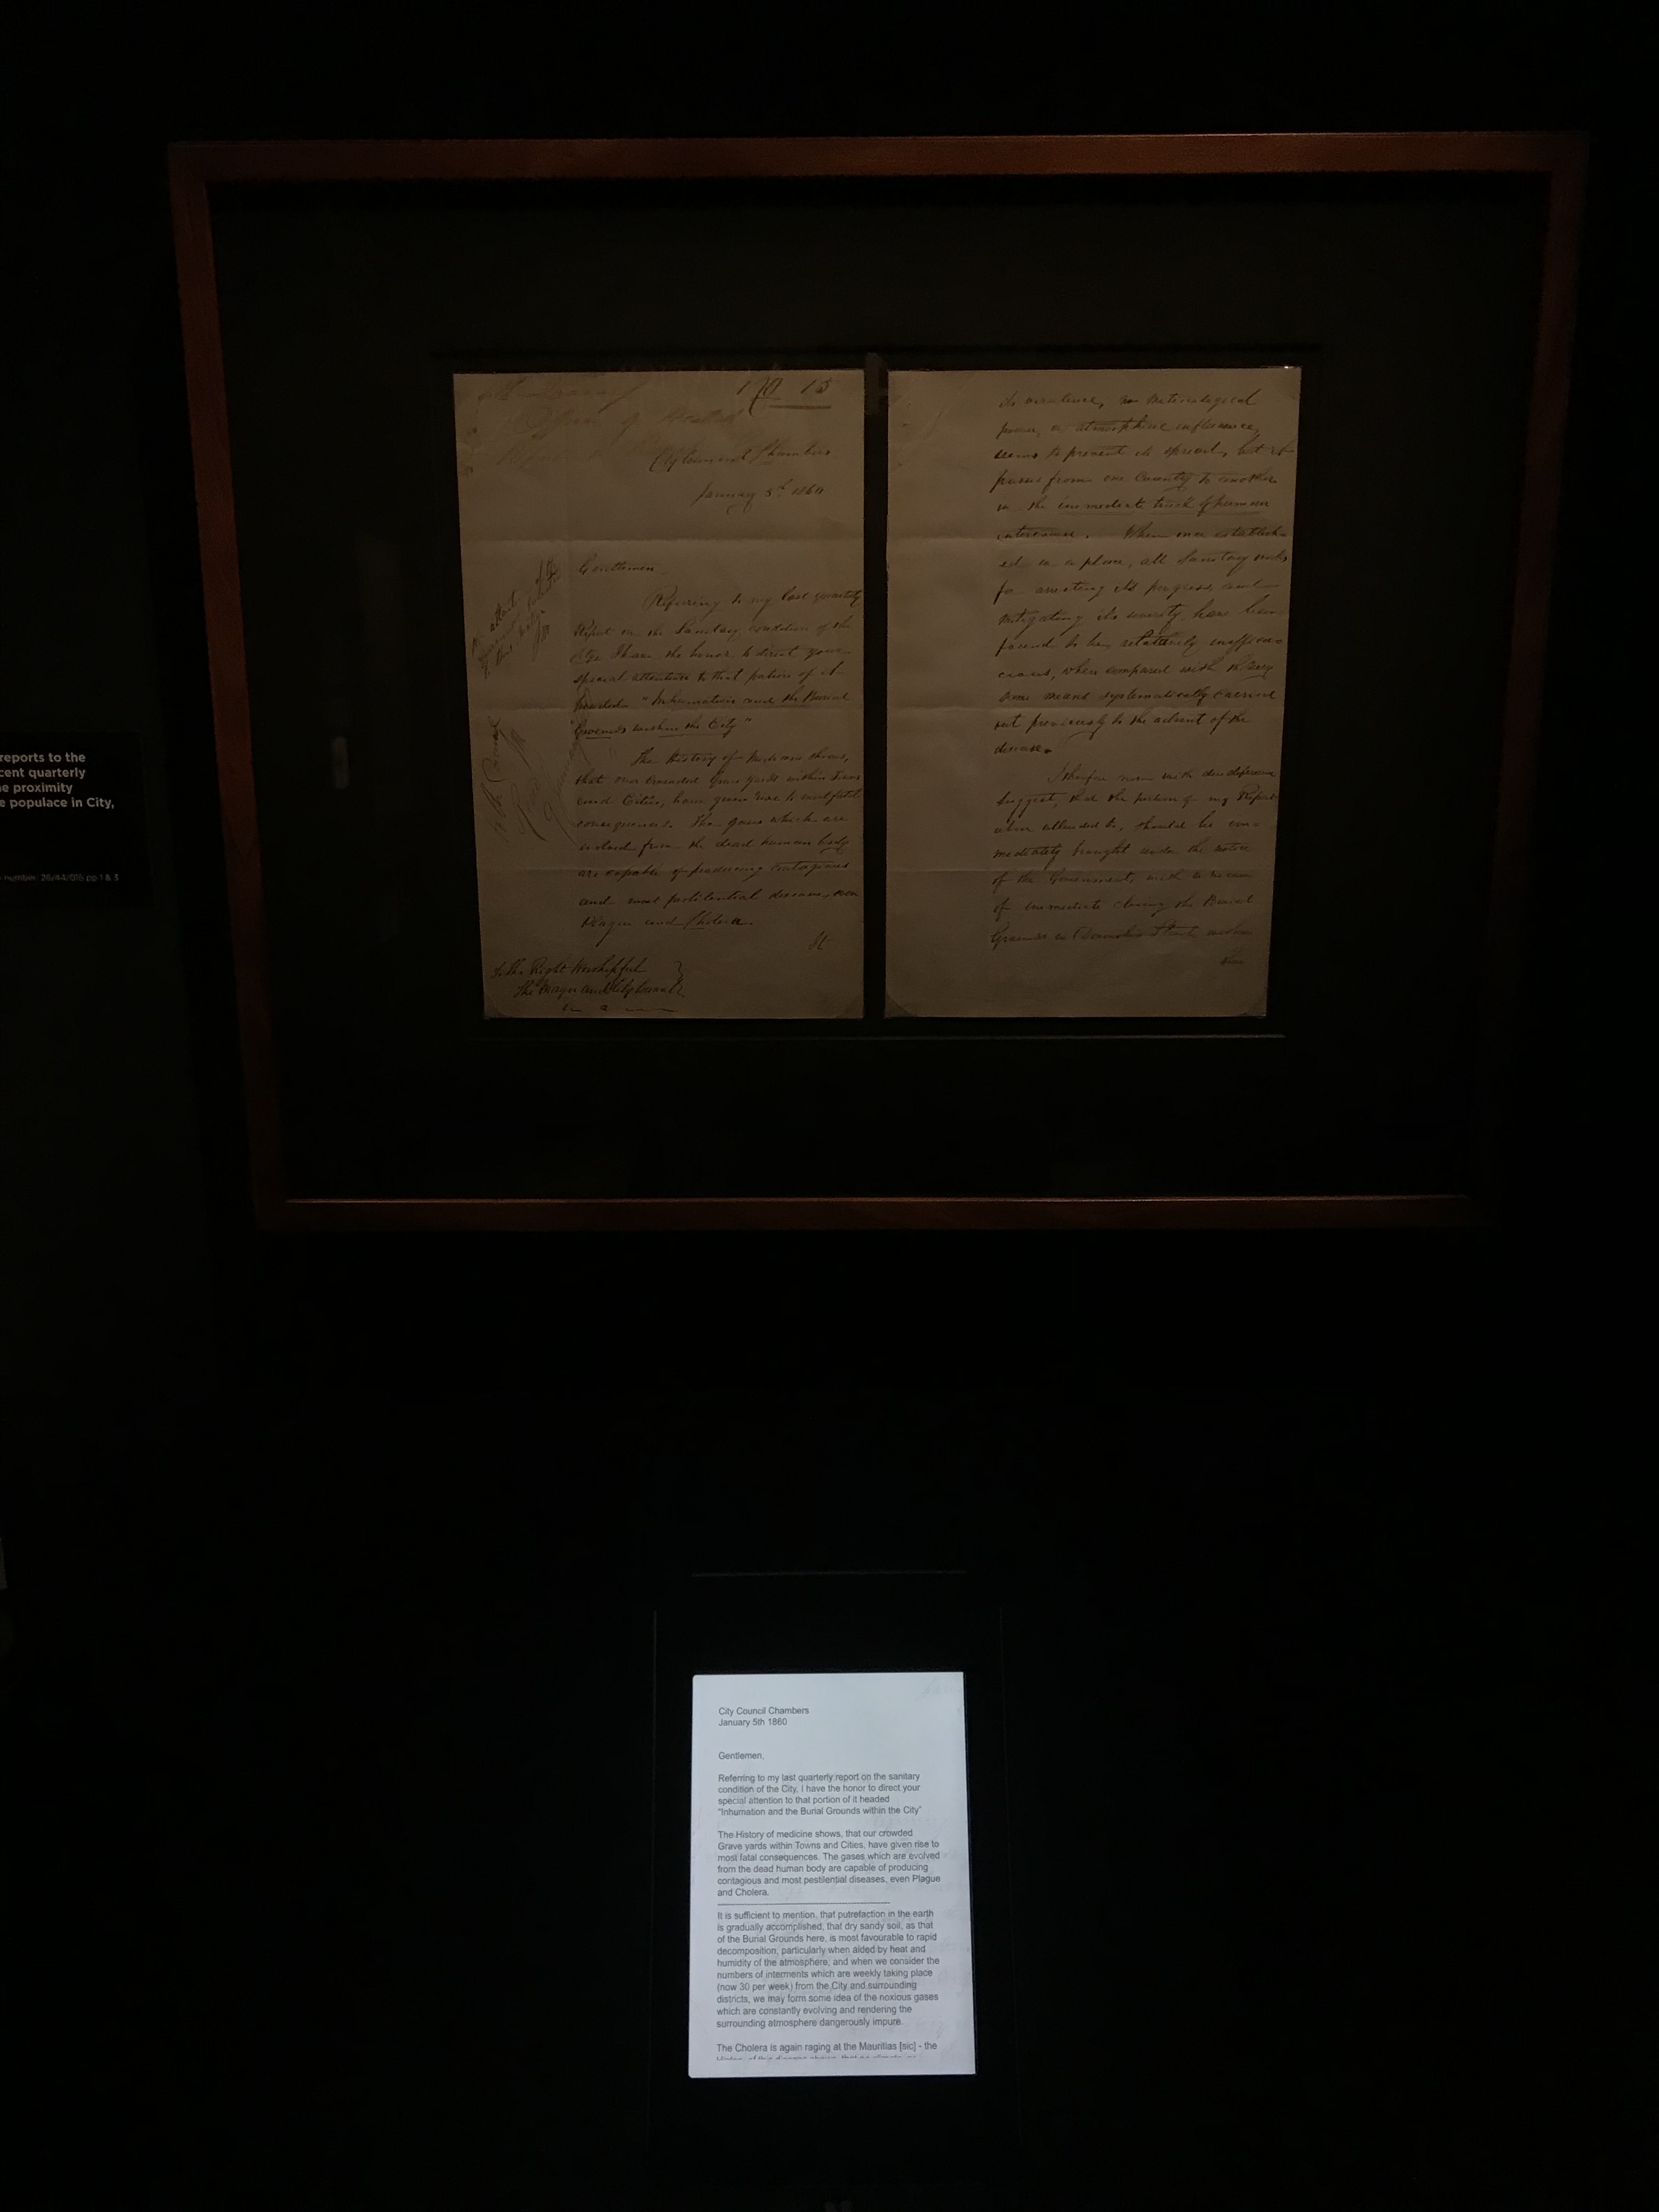 reports to the
cent quarterly
e proximity
e populace in City,
number: 26/44/016 pp 1 & 3
15
City Council Chambers
January 5th 1860
Gentlemen
Referring to my last quarterly
Report on the Sanitary condition of the
City I have the honor to direct your
special attention to that portion of it
headed "Inhumation and the Burial
Grounds within the City"
The History of Medicine shows,
that our crowded Grave yards within Towns
and Cities, have given rise to most fatal
consequences. The gases which are
evolved from the dead human body
are capable of producing contagious
and most pestilential diseases, even
Plague and Cholera.
It
To The Right Worshipful
The Mayor and City Council
no meteorological
power, or atmospheric influence,
seems to prevent its spread, but it
passes from one Country to another
in the immediate track of human
intercourse. When once establish-
ed in a place, all Sanitary
for arresting its progress, and
mitigating its severity, have been
found to be, relatively ineffica-
cious, when compared with the very
same means systematically carried
out previously to the advent of the
disease.
I therefore now with due deference
suggest, that the portion of my Report
above attended to, should be im-
mediately brought under the notice
of the Government, with a view
of immediate closing the Burial
Grounds in Street
City Council Chambers
January 5th 1860
Gentlemen,
Referring to my last quarterly report on the sanitary
condition of the City, I have the honor to direct your
special attention to that portion of it headed
"Inhumation and the Burial Grounds within the City"
The History of medicine shows, that our crowded
Grave yards within Towns and Cities, have given rise to
most fatal consequences. The gases which are evolved
from the dead human body are capable of producing
contagious and most pestilential diseases, even Plague
and Cholera.
It is sufficient to mention, that putrefaction in the earth
is gradually accomplished, that dry sandy soil, as that
of the Burial Grounds here, is most favourable to rapid
decomposition, particularly when aided by heat and
humidity of the atmosphere; and when we consider the
numbers of interments which are weekly taking place
(now 30 per week) from the City and surrounding
districts, we may form some idea of the noxious gases
which are constantly evolving and rendering the
surrounding atmosphere dangerously impure.
The Cholera is again raging at the Mauritias [sic] - the